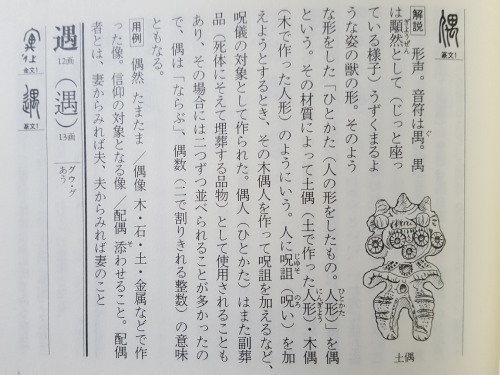 篆文1
解説 形声。音符は禺。禺
は顒然として(じっと座っ
ている様子)うずくまるよ
うな姿の獣の形。そのよう
な形をした「ひとかた(人の形をしたもの。人形)」を偶
という。その材質によって土偶(土で作った人形)・木偶
(木で作った人形)のようにいう。人に呪詛(呪い)を加
えようとするとき、その木偶人を作って呪詛を加えるなど、
呪儀の対象として作られた。偶人(ひとかた)はまた副葬
品(死体にそえて埋葬する品物)として使用されることも
あり、その場合には二つずつ並べられることが多かったの
で、偶は「ならぶ」、偶数(二で割りきれる整数)の意味
ともなる。
土偶
用例 偶然 たまたま/偶像 木・石・土・金属などで作
った像。信仰の対象となる像/配偶 添わせること。配偶
者とは、妻からみれば夫、夫からみれば妻のこと
遇 12画 (遇) 13画 グウ・グ
あう
金文1
篆文1